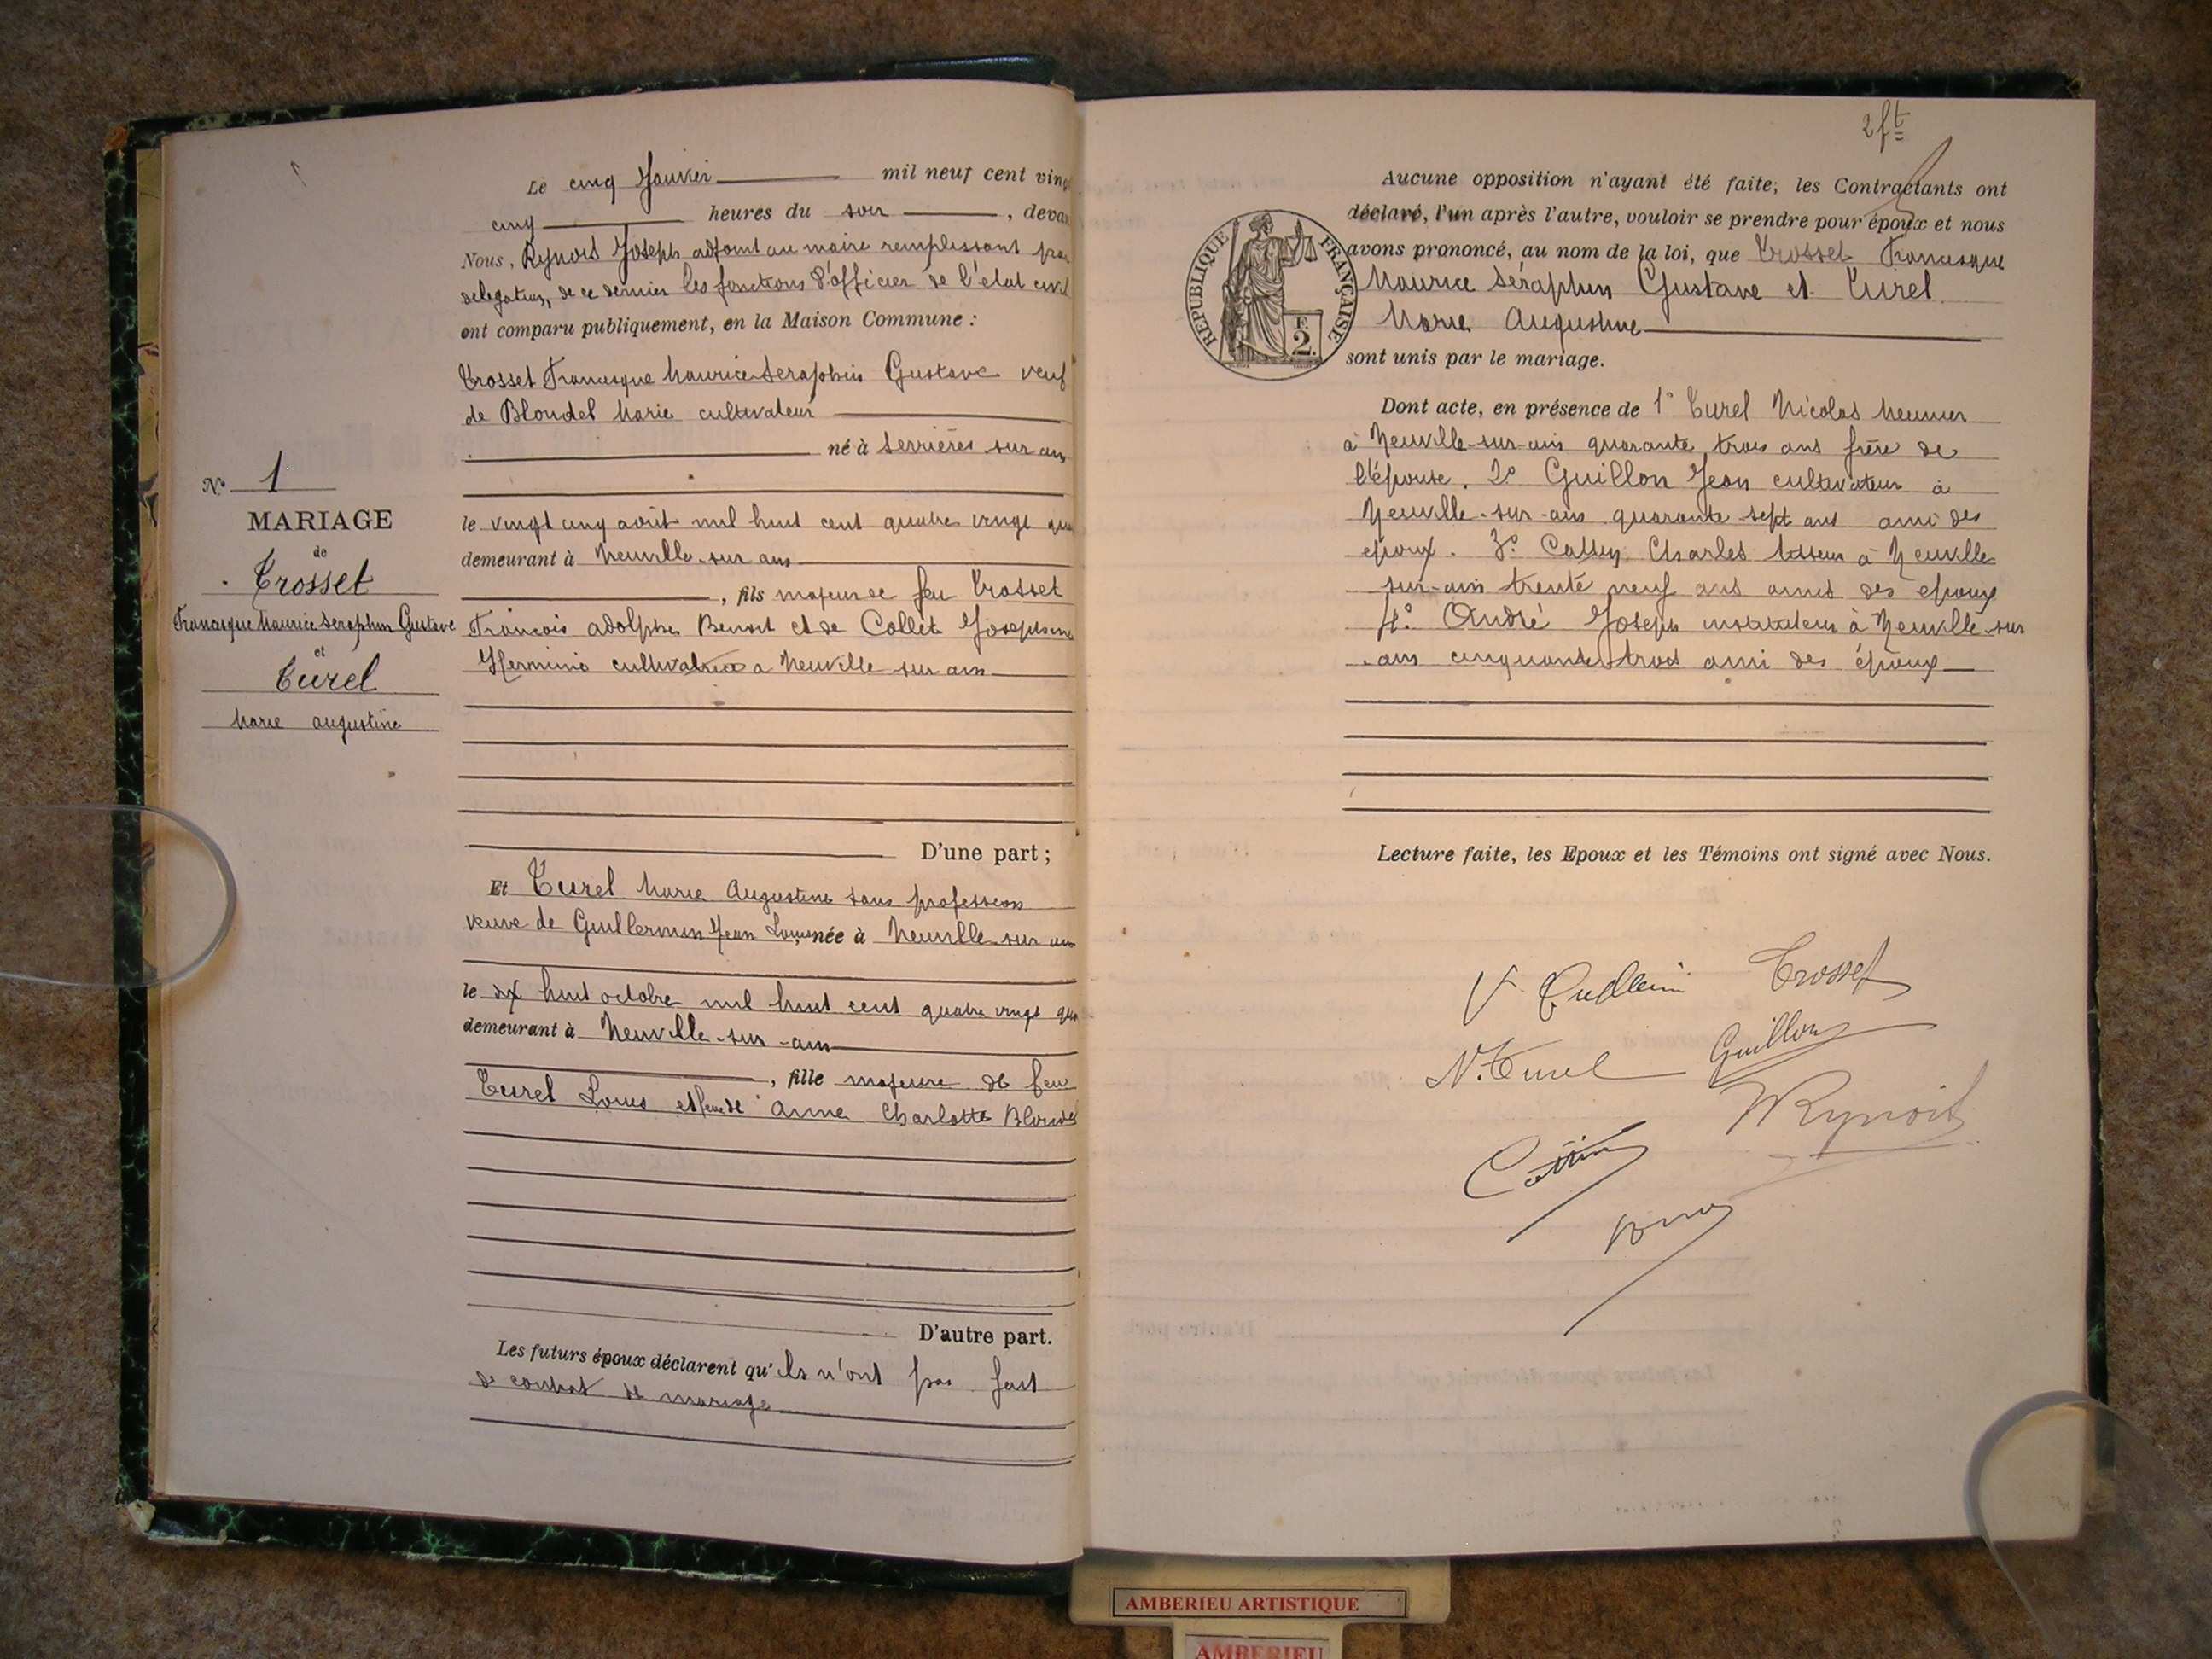 Le cinq Janvier mil neuf cent ving
cinq heures du soir , deva
Nous, Rynois Joseph adjoint au maire remplissant par
délégation, de ce dernier les fonctions d'officier de l'état civil
ont comparu publiquement, en la Maison Commune :
Trosset Francisque Maurice Seraphin Gustave veuf
de Blondel Marie cultivateur
né à Serrières sur ain
N° 1
MARIAGE
de
Trosset
Francisque Maurice Seraphin Gustave
et
Turel
Marie augustine
le vingt cinq août mil huit cent quatre vingt
demeurant à Neuville-sur ain
, fils majeur de feu Trosset
Francois adolphe Benoit et de Collet Josephine
Herminie cultivatrice a Neuville sur ain
D'une part ;
Et Turel Marie Augustine sans profession
veuve de Guillermin Jean Louis née à Neuville-sur ain
le dix huit octobre mil huit cent quatre vingt
demeurant à Neuville-sur-ain
, fille majeure de feu
Turel Louis et feue de Anne Charlotte Blondel
D'autre part.
Les futurs époux déclarent qu'ils n'ont pas fait
de contrat de mariage
2 ft
Aucune opposition n'ayant été faite, les Contractants ont
déclaré, l'un après l'autre, vouloir se prendre pour époux et nous
avons prononcé, au nom de la loi, que Trosset Francisque
Maurice Séraphin Gustave et Turel
Marie Augustine
sont unis par le mariage.
REPUBLIQUE FRANÇAISE
F.
2.
Dont acte, en présence de 1° Turel Nicolas Meunier
à Neuville-sur-ain quarante trois ans frère de
l'épouse. 2° Guillon Jean cultivateur à
Neuville-sur-ain quarante sept ans ami des
époux. 3° Charles tisseur à Neuville
sur-ain trente neuf ans amis des époux
4° André Joseph instituteur à Neuville-sur
-ain cinquante trois ami des époux
Lecture faite, les Epoux et les Témoins ont signé avec Nous.
Trosset
N. Turel
Guillon
Rynois
AMBERIEU ARTISTIQUE
AMBERIEU